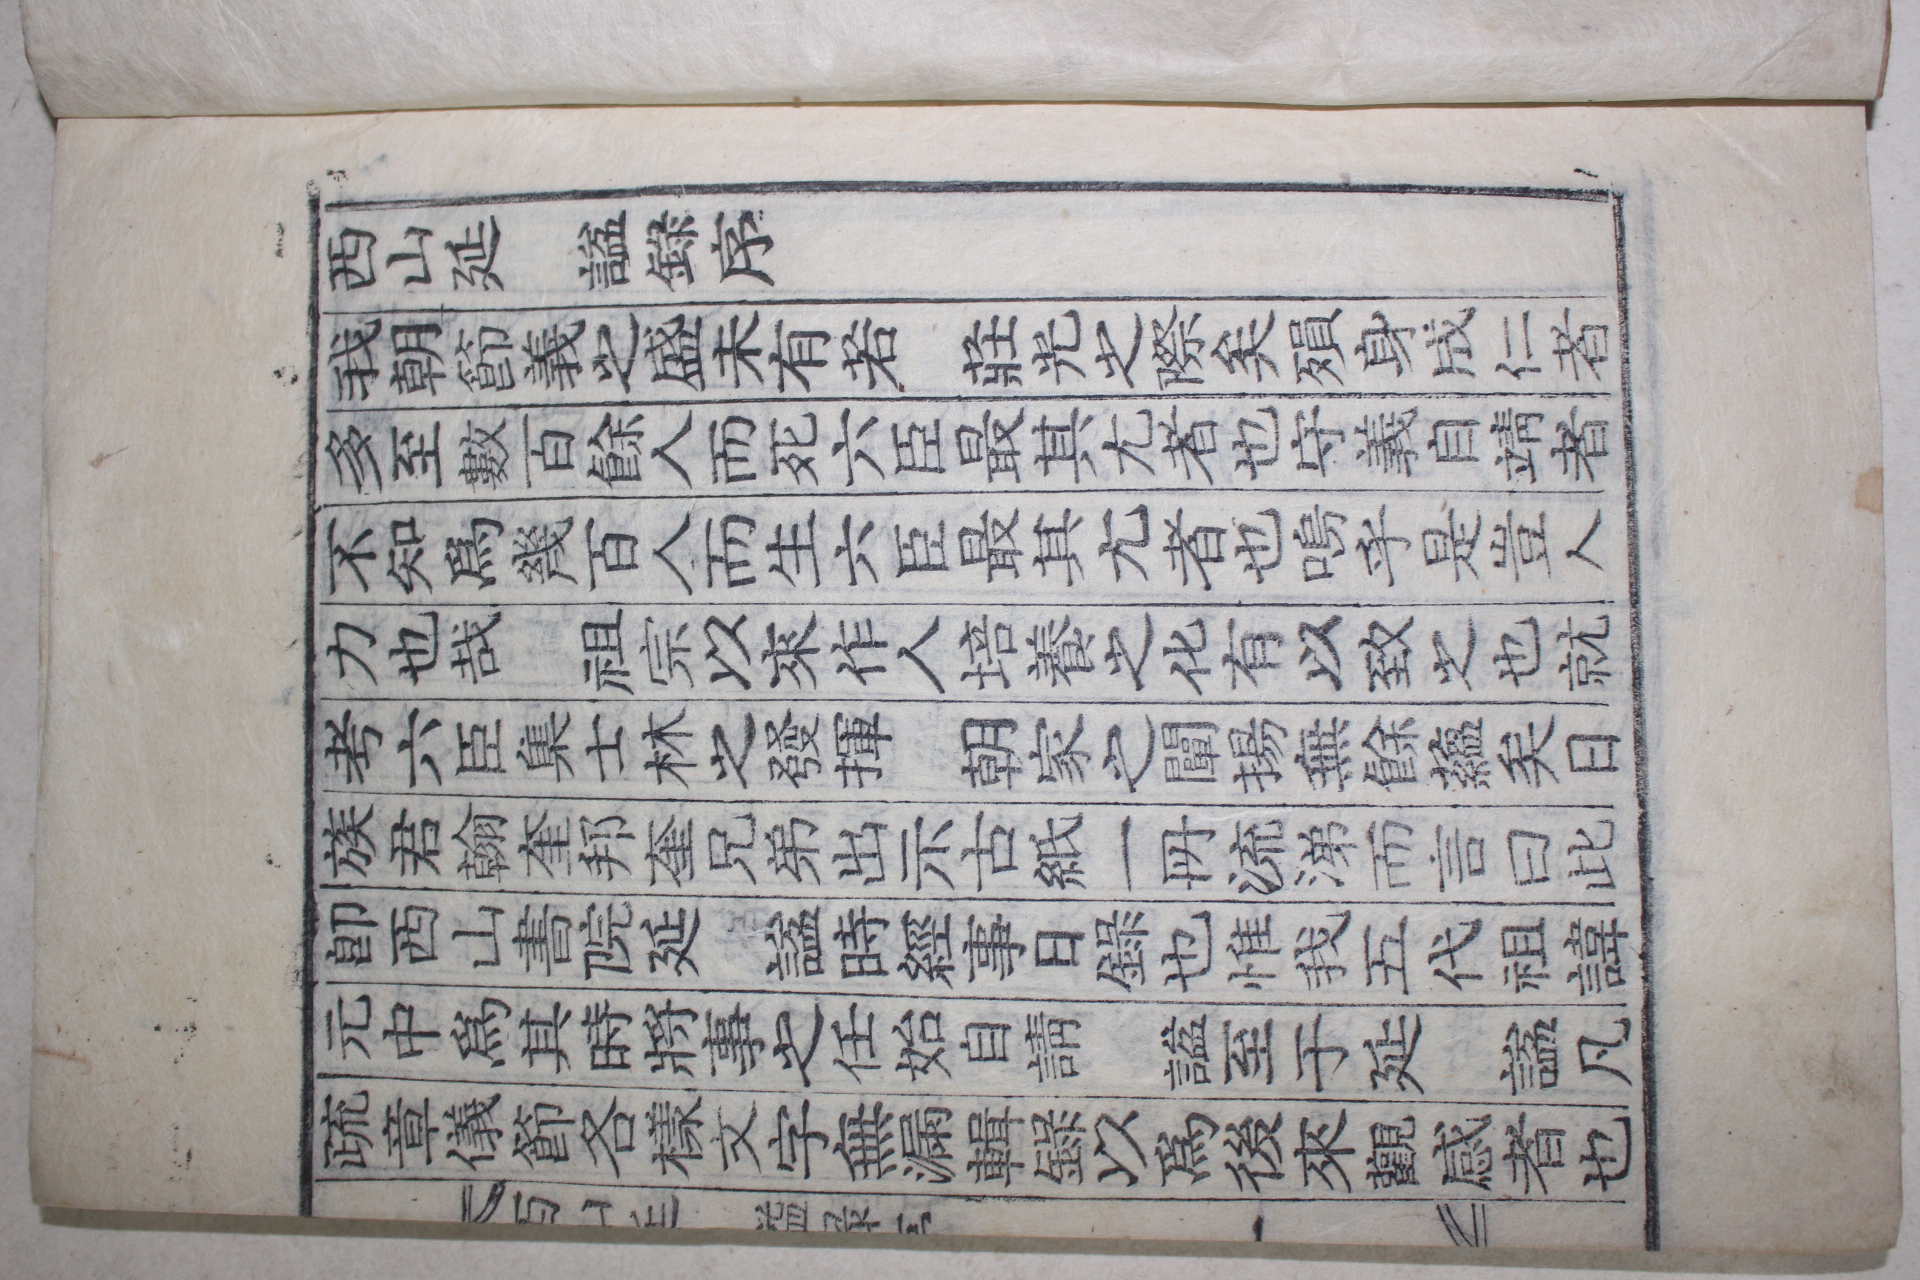 西山延 諡錄序
我朝節義之盛未有若 莊光之際矣殞身成仁者
多至數百餘人而死六臣最其尤者也守義自靖者
不知爲幾百人而生六臣最其尤者也嗚乎是豈人
力也哉 祖宗以來作人培養之化有以致之也就
考六臣集士林之發揮 朝家之闡揚無餘蘊矣日
族君翰奎邦奎兄弟出示古紙一冊流涕而言曰此
卽西山書院延 諡時經事日錄也惟我五代祖諱
元中爲其時將事之任始自請 諡至于延 諡凡
疏章儀節各樣文字無漏輯錄以爲後來觀感者也
西山延 諡錄序